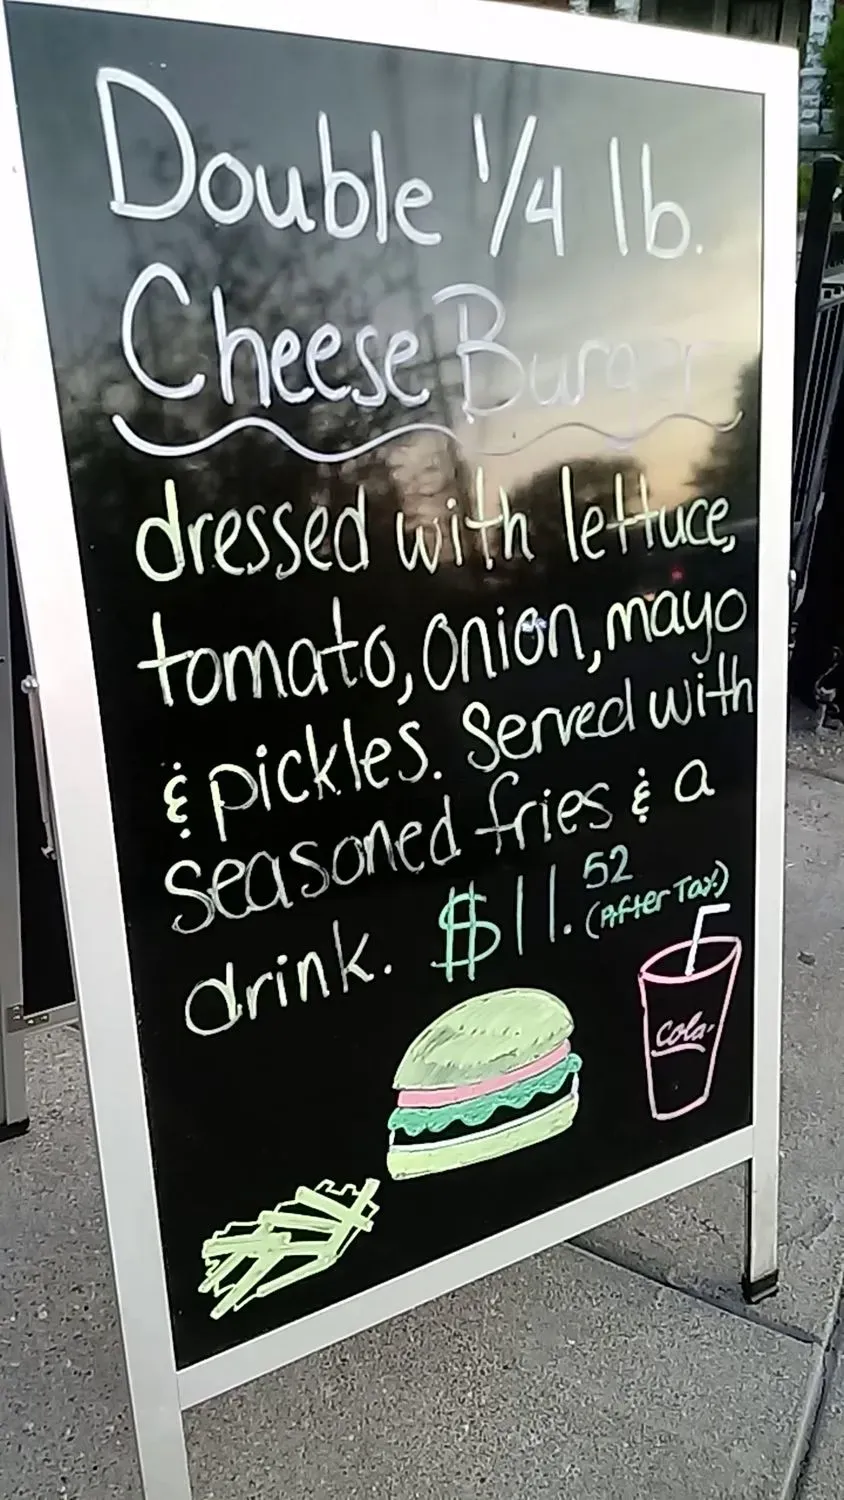 Double 1/4 lb.
Cheese Burger
dressed with lettuce,
tomato, onion, mayo
& pickles. Served with
seasoned fries & a
drink. $11.52
(After Tax.)
Cola